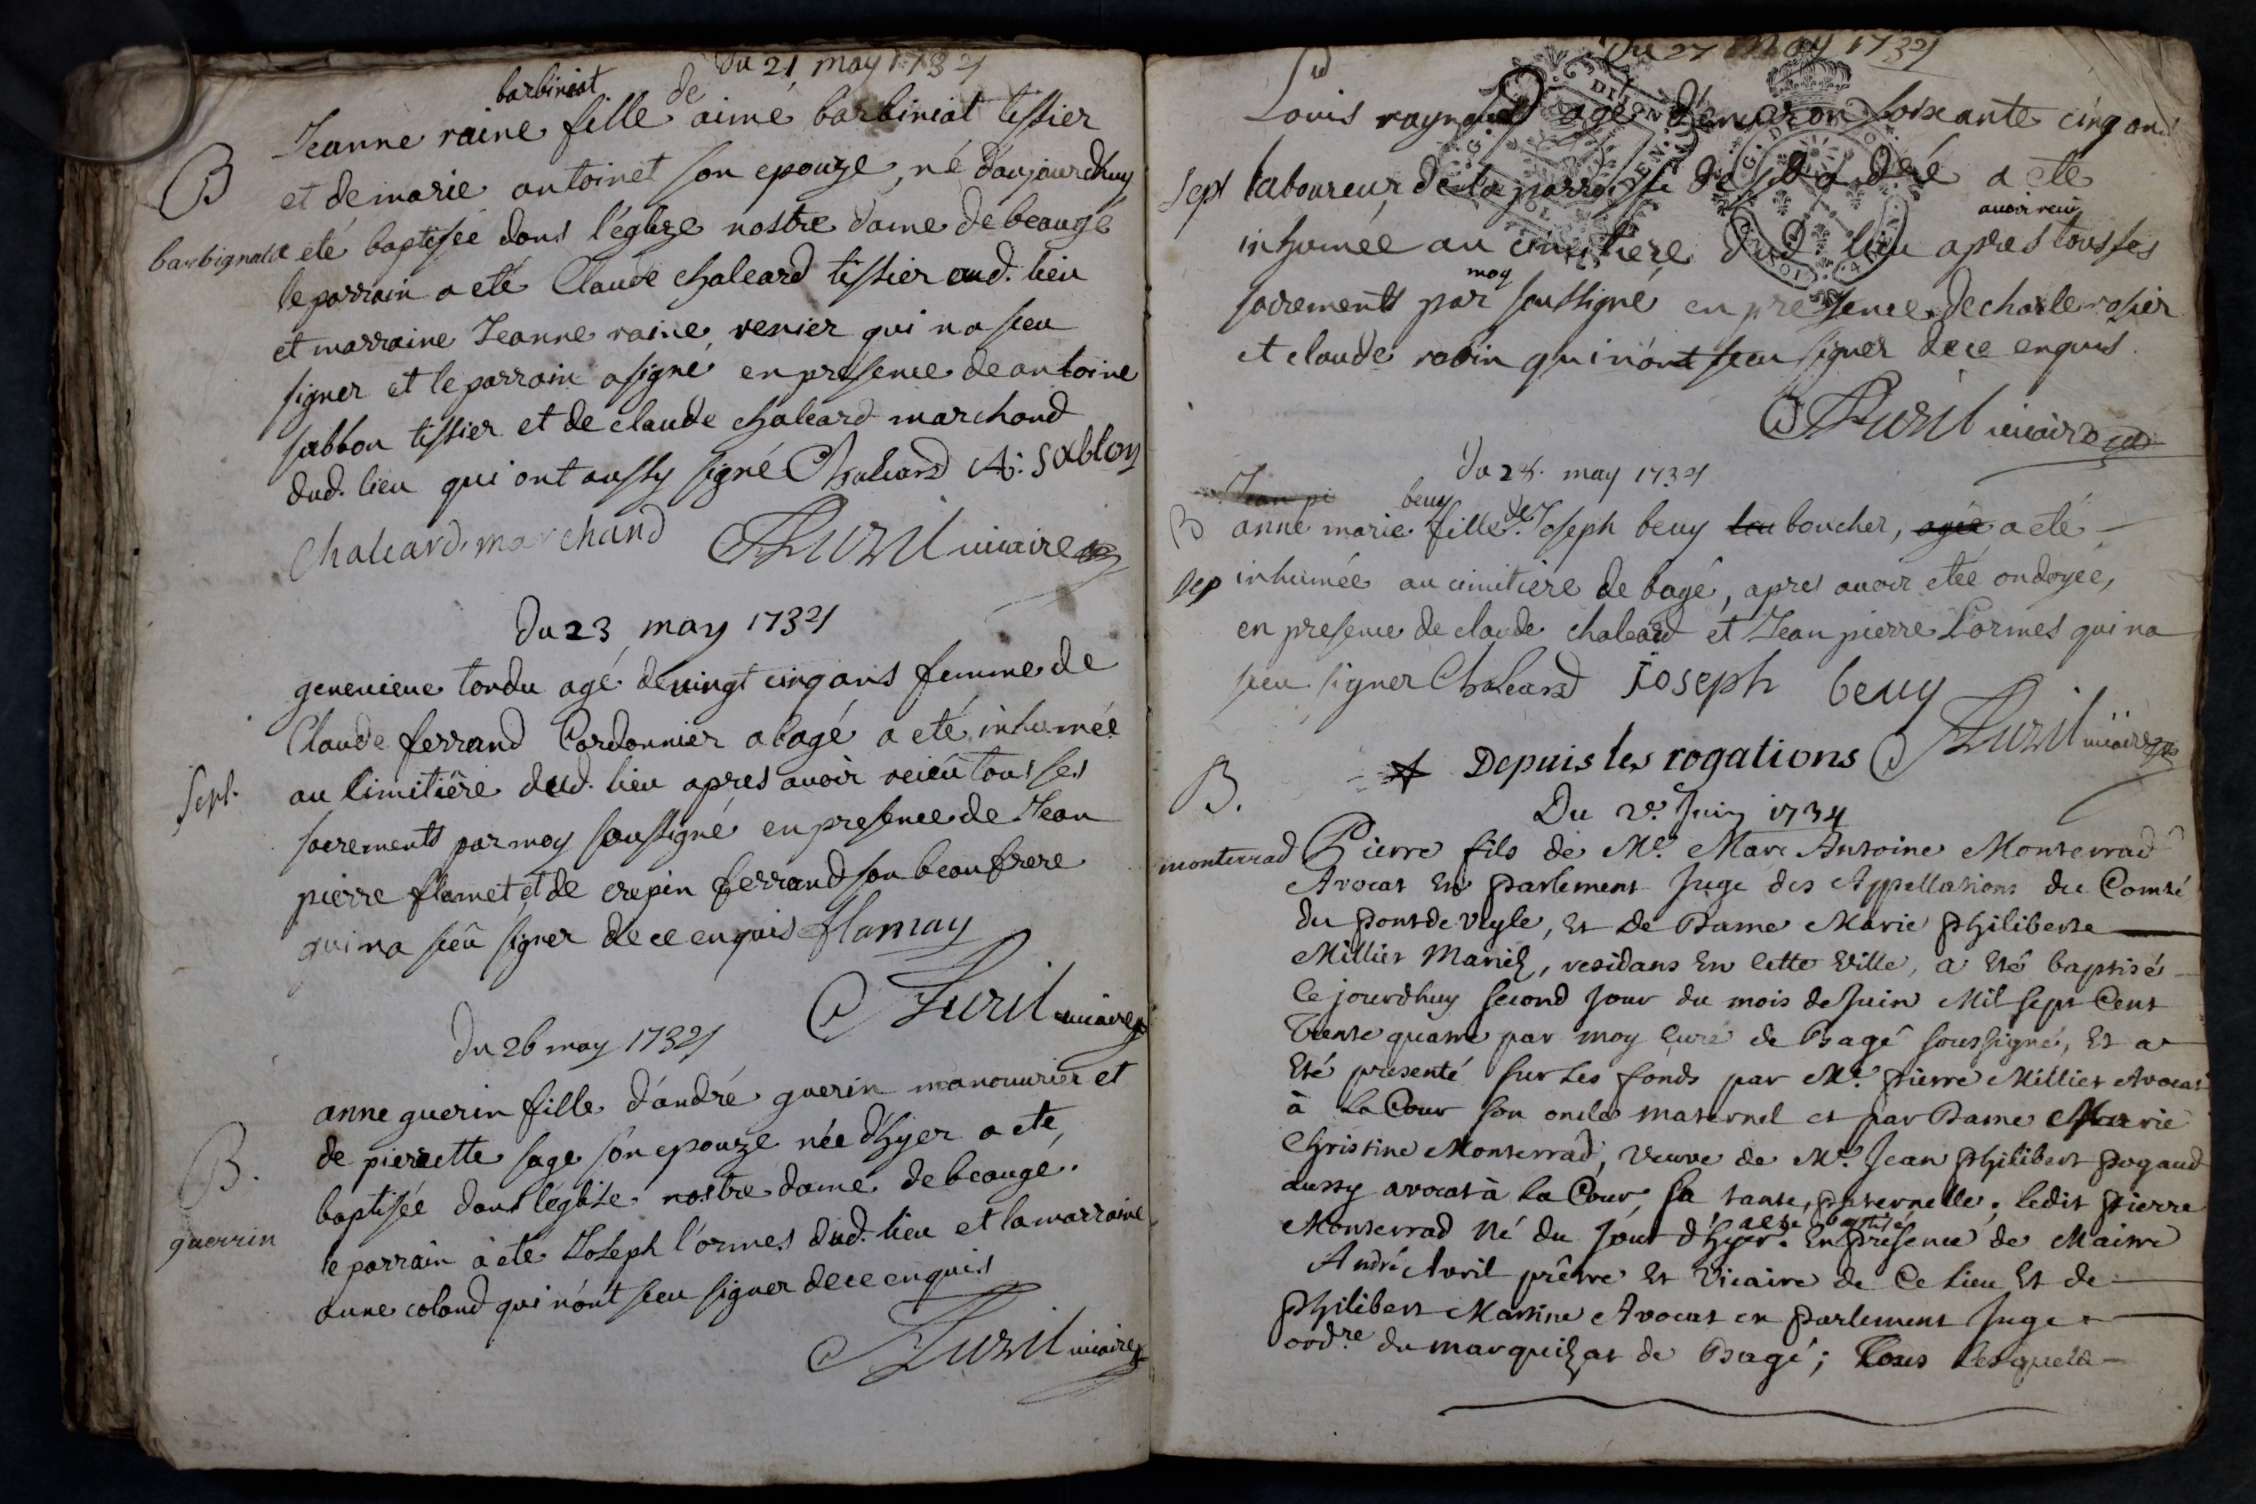 Du 21 may 1734
barbiniat
Jeanne raine fille de aimé barbiniat tissier
B
et de marie antoinet son epouze, né d'aujourdhuy
barbigniat a eté baptisée dans l'églize nostre dame de beaugé
le parrain a eté Claude chaleard tissier aud. lieu
et marraine Jeanne raine renier qui na sceu
signer et le parrain a signé en presence de antoine
sabbon tissier et de claude chaleard marchand
dud. lieu qui ont aussy signé Chaleard A: Sablon
Chaleard marchand Auril uicaire
Du 23 may 1734
genevieve tondu agé de uingt cinq ans femme de
Claude ferrand Cordonnier a bagé a eté inhumée
Sept.
au Cimitiere dud. lieu apres auoir receu tous ses
sacrements par moy soussigné en presence de Jean
pierre flamet et de crepin ferrand son beau frere
qui na sceu signer de ce enquis flamay
Auril uicaire
Du 26 may 1734
anne guerin fille d'andré guerin manouurier et
de pierrette sage son epouze née d'hyer a eté
B.
baptisée dans l'églize nostre dame de beaugé.
guerrin
le parrain a eté Joseph l'ormes dud. lieu et la marraine
anne coland qui n'ont sceu signer de ce enquis
Auril uicaire
Du 27 may 1734
Louis raynaud agé d'enuiron soixante cinq ans
Sept laboureur de la parroisse de st andré a eté
auoir receu
inhumée au cimitiere dud. lieu apres tous ses
moy
sacrements par soussigné en presence de charle rosier
et claude robin qui n'ont sceu signer de ce enquis
Auril uicaire
Du 28. may 1734
Jean pi
beuy
B anne marie fille de Joseph beuy lau boucher, agée a eté
Sep inhumée au cimitiere de bagé, apres auoir eteé ondoyée,
en presence de claude chaleard et Jean pierre Lormes qui na
sceu signer Chaleard Joseph beuy
Auril uicaire
Depuis les rogations
B.
Du 2e. Juin 1734
monterrad Pierre fils de Me. Marc Antoine Monterrad
Avocat en parlement Juge des Appellations du Comté
du pont de vesle, et de Dame Marie philiberte
Millier Mariéz, residans en cette ville, a eté baptisé
Ce jourdhuy second jour du mois de Juin Mil sept Cent
Trente quatre par moy Curé de Bagé soussigné, et a
eté presenté sur les fonds par Me. pierre Millier Avocat
à la Cour son oncle maternel et par Dame Marie
Christine Monterrad, veuve de Me. Jean philibert pogaud
aussy avocat à la Cour, sa tante, paternelle; ledit pierre
a eté baptisé
Monterrad Né du jour d'hyer. En presence de Maitre
André Avril prêtre et vicaire de Ce lieu et de
philibert Martine Avocat en parlement Juge
ordre. du marquizat de Bagé; Tous lesquels